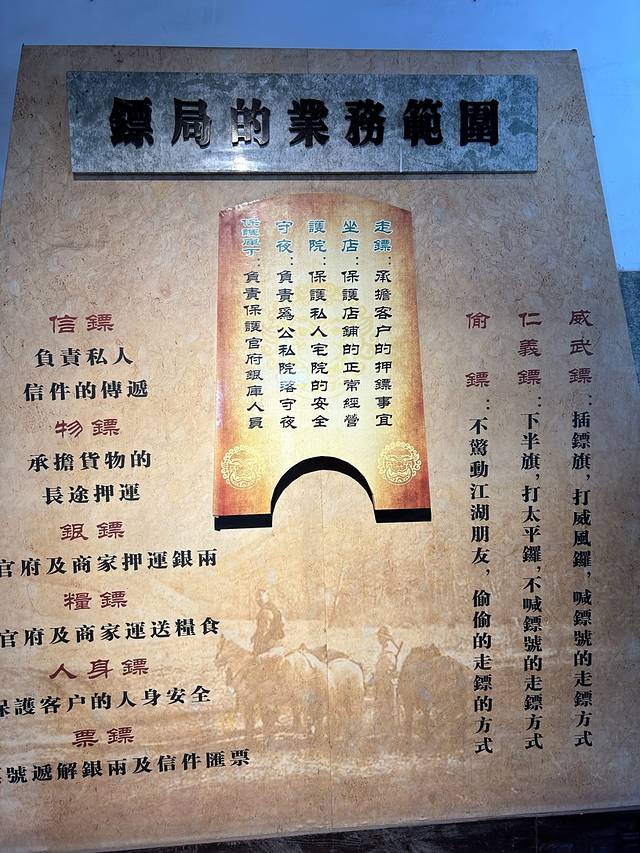 鏢局的業務範圍
威武鏢：插鏢旗，打威風鑼，喊鏢號的走鏢方式
仁義鏢：下半旗，打太平鑼，不喊鏢號的走鏢方式
偷鏢：不驚動江湖朋友，偷偷的走鏢的方式
走鏢：承擔客户的押鏢事宜
坐店：保護店鋪的正常經營
護院：保護私人宅院的安全
守夜：負責爲公私院落守夜
保護庫丁：負責保護官府銀庫人員
信鏢
負責私人
信件的傳遞
物鏢
承擔貨物的
長途押運
銀鏢
官府及商家押運銀兩
糧鏢
官府及商家運送糧食
人身鏢
保護客户的人身安全
票鏢
號遞解銀兩及信件匯票